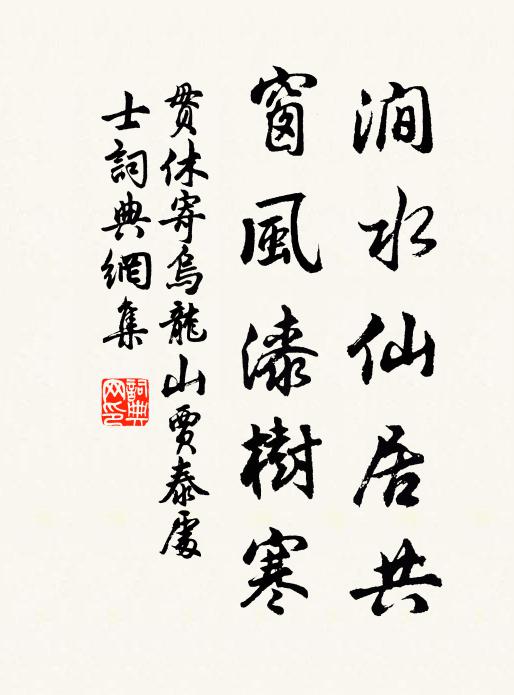 澗水仙居共
窗風漆樹寒
貫休寄烏龍山賈泰處
士詞典網集
詞典
网印